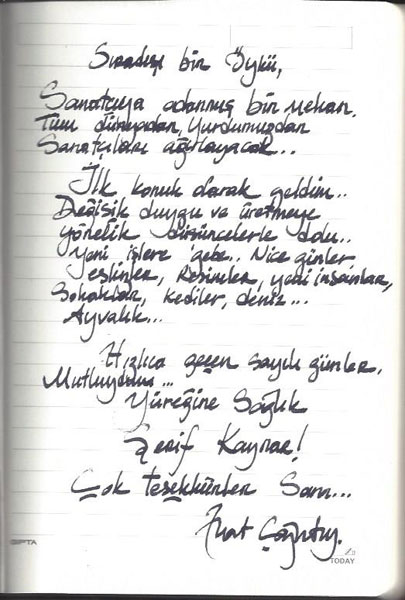 Sıradışı bir Öykü,
Sanatçıya adanmış bir mekan.
Tüm dünyadan, Yurdumuzdan
Sanatçıları ağırlayacak...
İlk konuk olarak geldim..
Değişik duygu ve üretmeye
yönelik düşüncelerle dolu..
Yeni işlere gebe.. Nice günler
eskizler, Resimler, yeni insanlar,
Sokaklar, kediler, deniz...
Ayvalık...
Hızlıca geçen sayılı günler.
Mutluydum...
Yüreğine Sağlık
Şerif Kaynar!
Çok teşekkürler Sana...
Fuat
GIPTA
TODAY